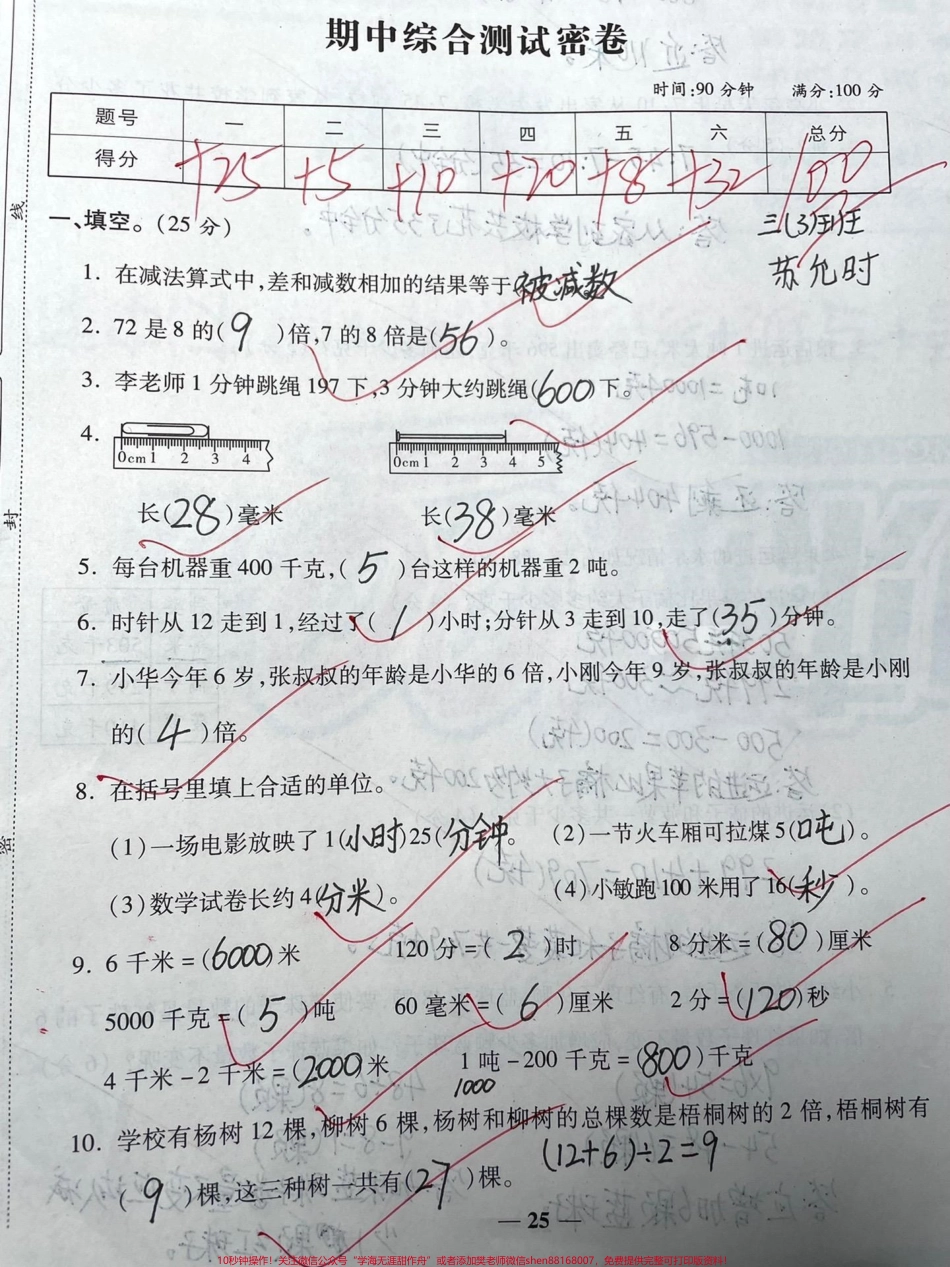 期中综合测试密卷
时间:90分钟 满分:100分
题号 一 二 三 四 五 六 总分
得分 +25 +5 +10 +20 +8 +32 100
一、填空。(25分)
三(3)班
苏允时
1. 在减法算式中,差和减数相加的结果等于被减数
2. 72是8的(9)倍,7的8倍是(56)。
3. 李老师1分钟跳绳197下,3分钟大约跳绳(600)下。
4.
0cm 1 2 3 4
0cm 1 2 3 4 5
长(28)毫米 长(38)毫米
5. 每台机器重400千克,(5)台这样的机器重2吨。
6. 时针从12走到1,经过了(1)小时;分针从3走到10,走了(35)分钟。
7. 小华今年6岁,张叔叔的年龄是小华的6倍,小刚今年9岁,张叔叔的年龄是小刚
的(4)倍。
8. 在括号里填上合适的单位。
(1)一场电影放映了1(小时)25(分钟。 (2)一节火车厢可拉煤5(吨)。
(3)数学试卷长约4(分米)。 (4)小敏跑100米用了16(秒)。
9. 6千米=(6000)米 120分=(2)时 8分米=(80)厘米
5000千克=(5)吨 60毫米=(6)厘米 2分=(120)秒
4千米-2千米=(2000)米 1吨-200千克=(800)千克
1000
10. 学校有杨树12棵,柳树6棵,杨树和柳树的总棵数是梧桐树的2倍,梧桐树有
(12+6)÷2=9
(9)棵,这三种树一共有(27)棵。
— 25 —
线
封
密
10秒钟操作！关注微信公众号“学海无涯甜作舟”或者添加樊老师微信shen88168007，免费提供完整可打印版资料！